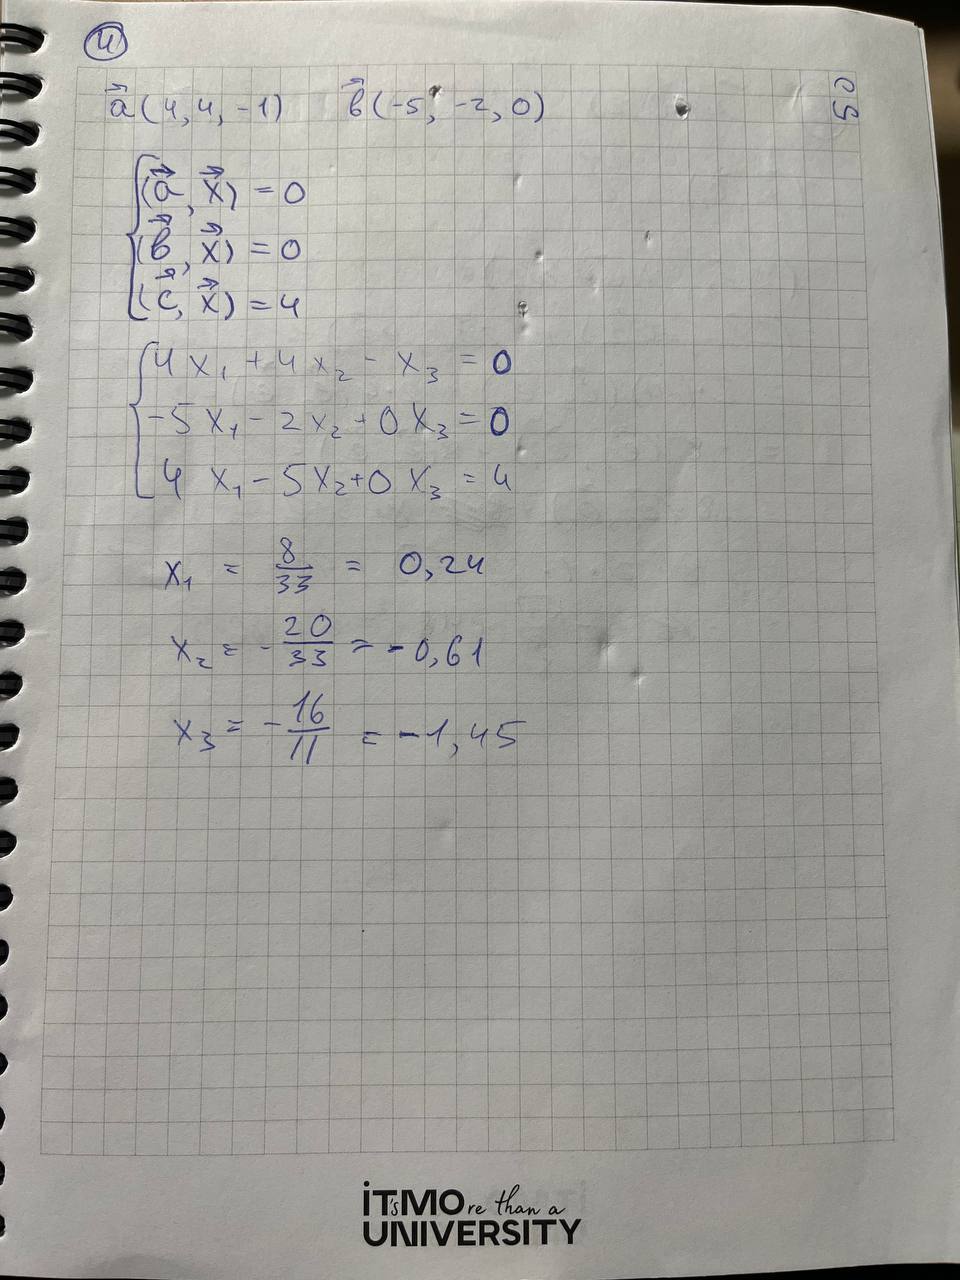 4
a⃗(4,4,-1) b⃗(-5,-2,0)
(a⃗, x⃗) = 0
(b⃗, x⃗) = 0
(c⃗, x⃗) = 4
4x₁ + 4x₂ - x₃ = 0
-5x₁ - 2x₂ + 0x₃ = 0
4x₁ - 5x₂ + 0x₃ = 4
x₁ = 8/33 = 0,24
x₂ = -20/33 = -0,61
x₃ = -16/11 = -1,45
iT'sMOre than a
UNIVERSITY